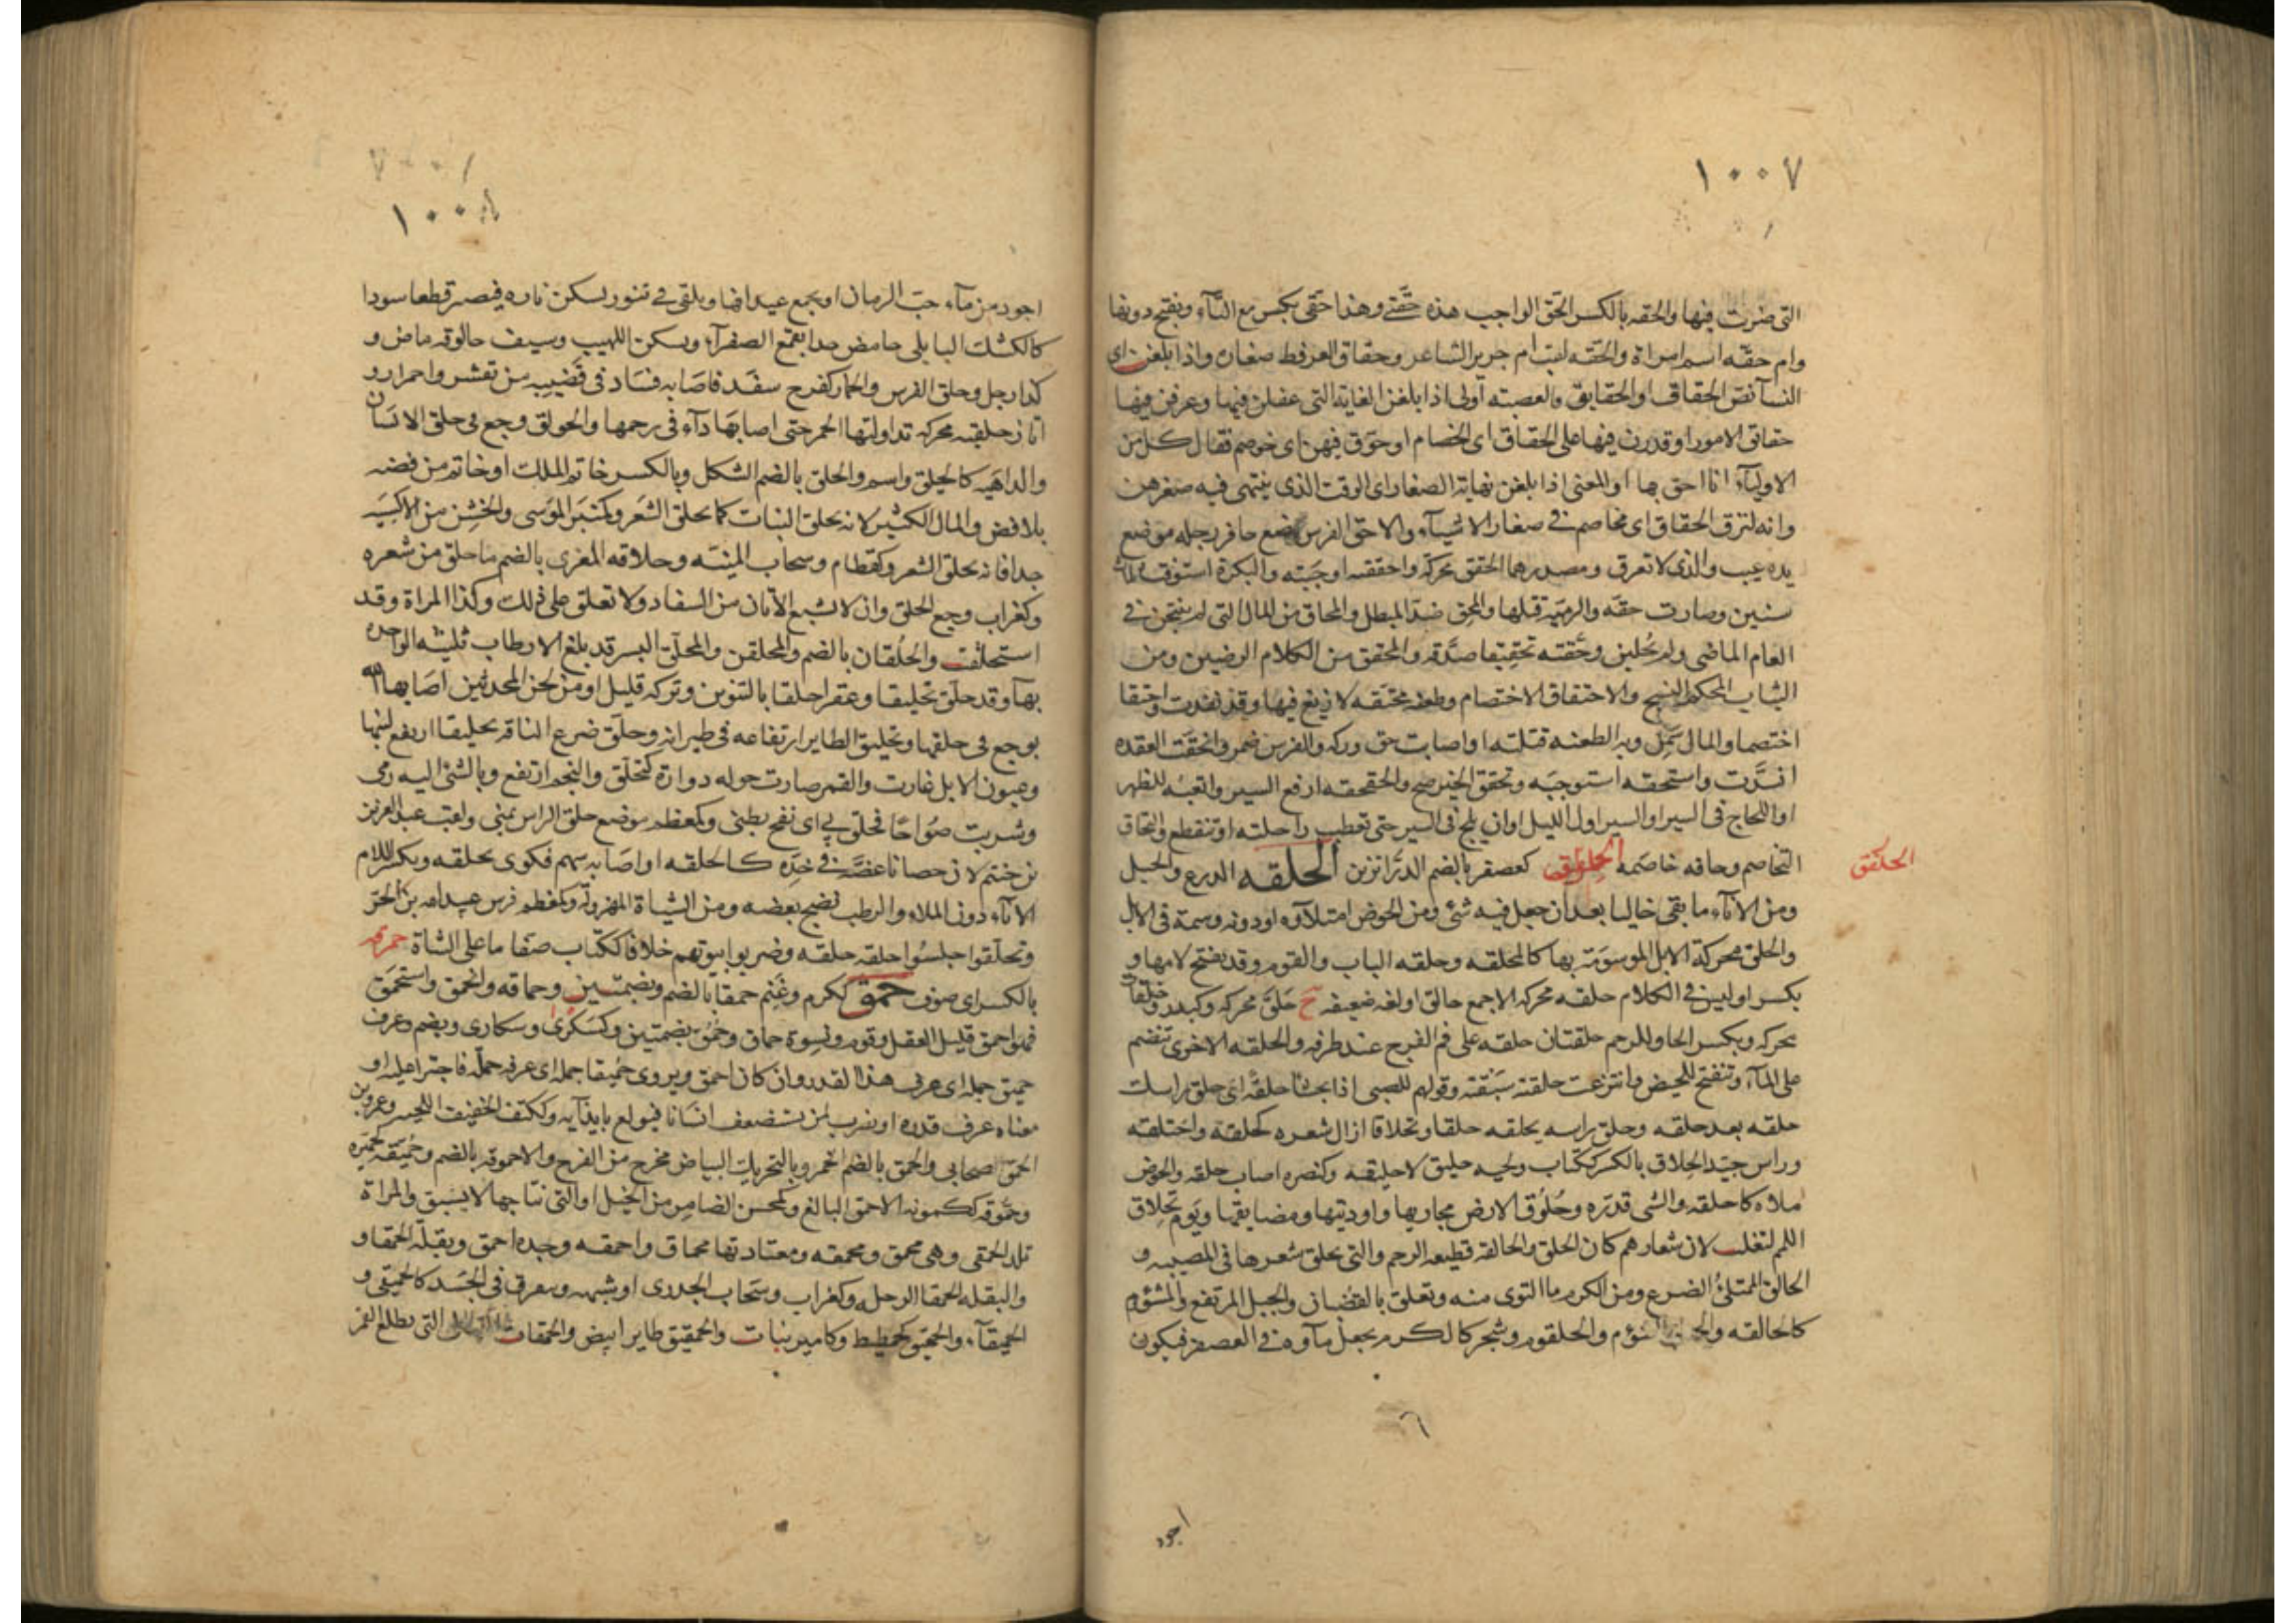 ١٠٠٧
التى ضربت فيها والحقه بالكسر الحق الواجب هذه حقتى وهذا حقى بكسر مع التآء ويفتح دونها
وام حقه اسم امراة والحقه لقب ام جرير الشاعر وحقاق العرفط صغاره واذا بلغن اى
النسا نص الحقاق او الحقايق فالعصبته اولى اذا بلغن الغاية التى عقلن فيها وعرفن فيها
حقائق الامور او قدرن فيها على الحقاق اى الخصام او حوق فيهن اى خوصم فقال كل من
الاوليآء انا احق بها او المعنى اذا بلغن نهاية الصغار اى الوقت الذى ينتهى فيه صغرهن
وانه لنزق الحقاق اى مخاصم فى صغار الاشيآء والاحق الفرس يضع حافر رجله موضع
يده عيب والذى لا تعرق ومصدرهما الحقق محركة واحققته اوجبته والبكرة استوفت ثلاث
سنين وصارت حقه والرميه قتلها والمحق ضد المبطل والمحاق من المال التى لم ينتجن فى
العام الماضى ولم يحلبن وحققه تحقيقا صدقه والمحقق من الكلام الرصين ومن
الثياب المحكم النسج والاحتقاق الاختصام وطعنه محتقه لا زيغ فيها وقد نفذت واحتقا
اختصما والمال سمن وبه الطعنه قتلته او اصابت حق وركه والفرس ضمر وانحقت العقده
انشدت واستحقه استوجبه وتحقق الخبر صح والحقحقه ارفع السير واتعبه للظهر
او اللجاج فى السير او السير اول الليل او ان يلج فى السير حتى تعطب راحلته او تنقطع والتحاق
التخاصم وحاقه خاصمه الحلفق كعصفر بالضم الدرابزين الحلقه الدرع والحبل
الحلفق
ومن الانآء ما بقى خاليا بعد ان جعل فيه شئ ومن الحوض امتلآوه او دونه وسمة فى الابل
والحلق محركة الابل الموسومة بها كالمحلقه وحلقه الباب والقوم وقد يفتح لامها و
بكسر او ليس فى الكلام حلقه محركه الا جمع حالق او لغه ضعيفه ج حلق محركه وكبدر وحلقات
محركه وبكسر الحا وللرحم حلقتان حلقه على فم الفرج عند طرفه والحلقه الاخرى تنضم
على المآء وتنفتح للحيض وانتزعت حلقته سبقته وقولهم للصبى اذا تجشا حلقة اى حلق راسك
حلقه بعد حلقه وحلق راسه يحلقه حلقا وتحلاقا ازال شعره كحلقه واحتلقه
وراس جيد الحلاق بالكسر ككتاب ولحيه حليق لا حليقه وكنصره اصاب حلقه والحوض
ملاه كاحلقه والشى قدره وحلوق الارض مجاريها واوديتها ومضايقها ويوم تحلاق
اللمم لتغلب لان شعارهم كان الحلق والحالقه قطيعه الرحم والتى تحلق شعرها فى المصيبه و
الحالق الممتلئ الضرع ومن الكرم ما التوى منه وتعلق بالقضبان والجبل المرتفع والمشؤم
كالحالقه والشؤم والحلقوم وشجر كالكرم يجعل مآوه فى العصفر فيكون
٦
اجود
١٠٠٧
١٠٠٨
اجود من مآء حب الرمان او يجمع عيدانها ويلقى فى تنور سكن ناره فيصير قطعا سودا
كالكشك البابلى حامض جدا يقمع الصفرآء ويسكن اللهيب وسيف حالوقه ماض و
كذا رجل وحلق الفرس والحمار كفرح سفد فاصابه فساد فى قضيبه من تقشر واحمرار و
اتان حلقيه محركه تداولتها الحمر حتى اصابها دآء فى رحمها والحولق وجع فى حلق الانسان
والداهيه كالحيلق واسم والحلق بالضم الثكل وبالكسر خاتم الملك او خاتم من فضه
بلا فص والمال الكثير لانه يحلق النبات كما يحلق الشعر وكمنبر الموسى والخشن من الاكسيه
جدا فانه يحلق الشعر وكقطام وسحاب المنيه وحلاقه المعزى بالضم ما حلق من شعره
وكغراب وجع الحلق وان لا تشبع الاتان من السفاد ولا تعلق على ذلك وكذا المراة وقد
استحلقت والحلقان بالضم والمحلقن والمحلق البسر قد بلغ الارطاب ثلثيه الواحده
بهآ وقد حلق تحليقا وعقرا حلقا بالتنوين وتركه قليل او من لحن المحدثين اصابها الله
بوجع فى حلقها وتحليق الطاير ارتفاعه فى طيرانه وحلق ضرع الناقه تحليقا ارتفع لبنها
وعيون الابل غارت والقمر صارت حوله دوارة كتحلق والنجم ارتفع وبالشئ اليه رمى
وشربت صواحا فحلق بى اى نفخ بطنى وكمعظم موضع حلق الراس بمنى ولقب عبد العزيز
بن خنتم لان حصانا عضه فى خده كالحلقه او اصابه سهم فكوى بحلقه وبكسر اللام
الانآء دون الملاء والرطب نضج بعضه ومن الشياة المهزولة وكمعظم فرس عبيد الله بن الحر
وتحلقوا جلسوا حلقه حلقه وضربوا بيوتهم خلافا ككتاب صفا ما على الشاة حمرقه
بالكسر اى صوف حمق ككرم وغنم حمقا بالضم وبضمتين وحماقه وانحمق واستحمق
فهو احمق قليل العقل وقوم ونسوة حماق وحمق بضمتين وكسكرى وسكارى ويضم وعرف
حميق جمله اى عرف هذا القدر وان كان احمق ويروى حميقا جمله اى عرفه جمله فاجترا عليه او
معناه عرف قدره او يضرب لمن يستضعف انسانا فيولع بايذآيه وككتف الخفيف اللحيه وعمرو بن
الحمق صحابى والحمق بالضم الخمر وبالتحريك البياض مخرج من الفرج والاحموقه بالضم وحميقه لحميره
وحموقه ككمونه الاحمق البالغ وكمحسن الضامر من الخيل او التى نتاجها لا يسبق والمراة
تلد الحمقى وهى محمق ومحمقه ومعتادتها محماق واحمقه وجده احمق وبقلة الحمقا و
والبقله الحمقا الرجله وكغراب وسحاب الجدرى او شبهه وسعرق فى الجسد كالحميقى و
الحميقآء والحميق كحميط وكامير نبات والحميقيق طاير ابيض والحمقات التى يطلع القمر